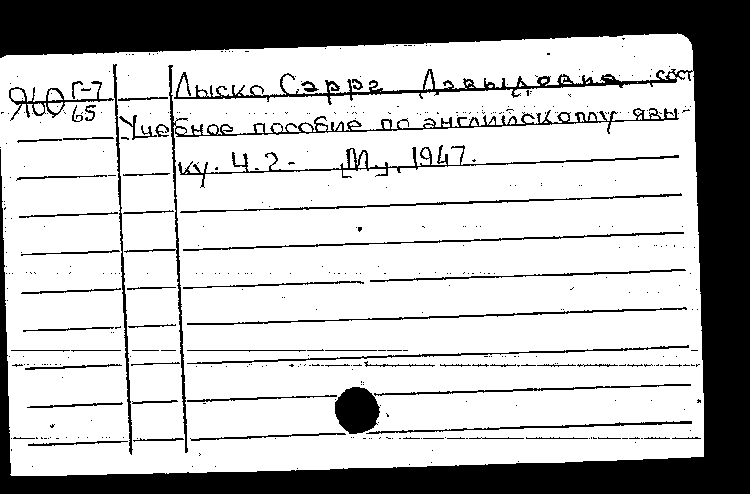 Я60 Г-7/65
Лыско, Сарра Давыдовна, сост.
Учебное пособие по английскому язы-
ку. Ч.2.- [М.], 1947.